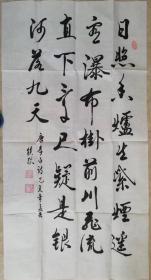 日照香爐生紫煙遥
看瀑布掛前川飛流
直下三千尺疑是銀
河落九天